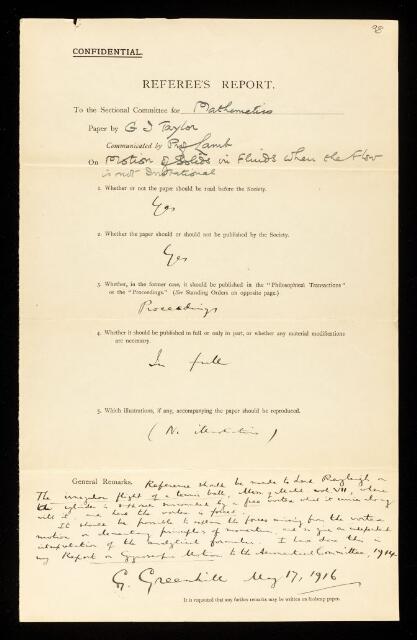 98
CONFIDENTIAL.
REFEREE'S REPORT.
To the Sectional Committee for Mathematics
Paper by G I Taylor
Communicated by Prof Lamb
On Motion of Solids in Fluids when the Flow
is not Irrotational
1. Whether or not the paper should be read before the Society.
Yes
2. Whether the paper should or should not be published by the Society.
Yes
3. Whether, in the former case, it should be published in the "Philosophical Transactions"
or the "Proceedings." (See Standing Orders on opposite page.)
Proceedings
4. Whether it should be published in full or only in part, or whether any material modifications
are necessary.
In full
5. Which illustrations, if any, accompanying the paper should be reproduced.
(No illustrations)
General Remarks. Reference should be made to Lord Rayleigh on
The irregular flight of a tennis ball, Mess. Math vol VII, where
the cylinder is surrounded by a free vortex, which it carries along
with it, and here the vortex is forced.
It should be possible to the forces arising from the vortex
motion on elementary principles of momentum, and so give an independent
interpretation of the analytical formulae. I have done this in
my Report on Gyroscopic Motion to the Committee, 1914.
G. Greenhill May 17, 1916
It is requested that any further remarks may be written on foolscap paper.